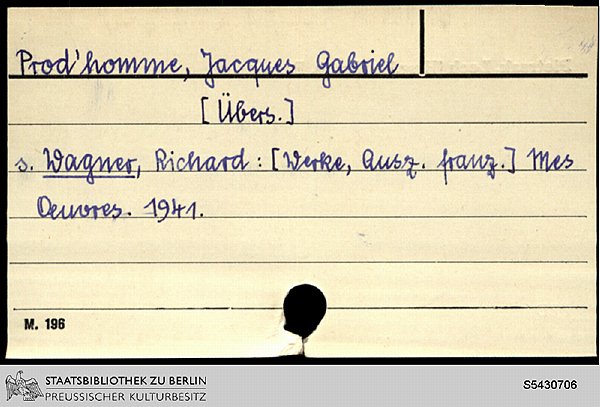 Prod'homme, Jacques Gabriel
[Übers.]
s. Wagner, Richard: [Werke, Ausz. franz.] Mes
Oeuvres. 1941.
M. 196
STAATSBIBLIOTHEK ZU BERLIN
PREUSSISCHER KULTURBESITZ
S5430706